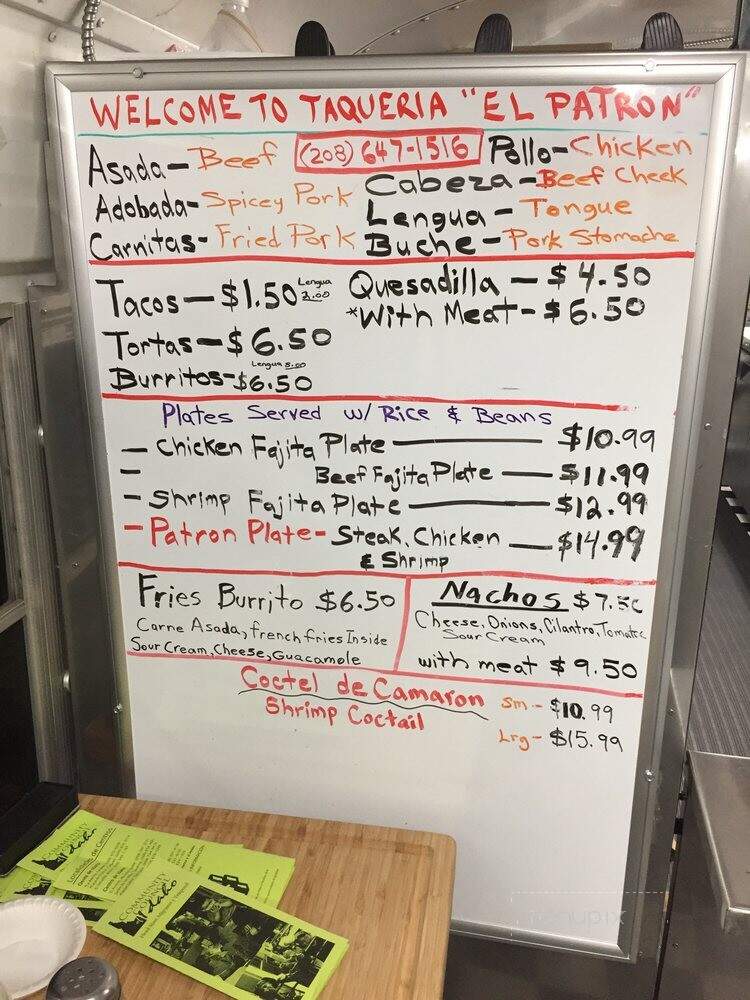 WELCOME TO TAQUERIA "EL PATRON"
Asada - Beef
(208) 647-1516
Pollo - Chicken
Adobada - Spicey Pork
Cabeza - Beef Cheek
Carnitas - Fried Pork
Lengua - Tongue
Buche - Pork Stomache
Tacos - $1.50 Lengua 2.00
Quesadilla - $4.50
*With Meat - $6.50
Tortas - $6.50
Burritos - $6.50 Lengua 8.00
Plates Served w/ Rice & Beans
- Chicken Fajita Plate - $10.99
- Beef Fajita Plate - $11.99
- Shrimp Fajita Plate - $12.99
- Patron Plate - Steak, Chicken & Shrimp - $14.99
Fries Burrito $6.50
Carne Asada, french fries Inside
Sour Cream, Cheese, Guacamole
Nachos $7.50
Cheese, Onions, Cilantro, Tomatoe
Sour Cream
with meat $9.50
Coctel de Camaron
Shrimp Coctail
Sm - $10.99
Lrg - $15.99
COMMUNITY
COUNCIL
Idaho
COMMUNITY
COUNCIL
Idaho
menupix